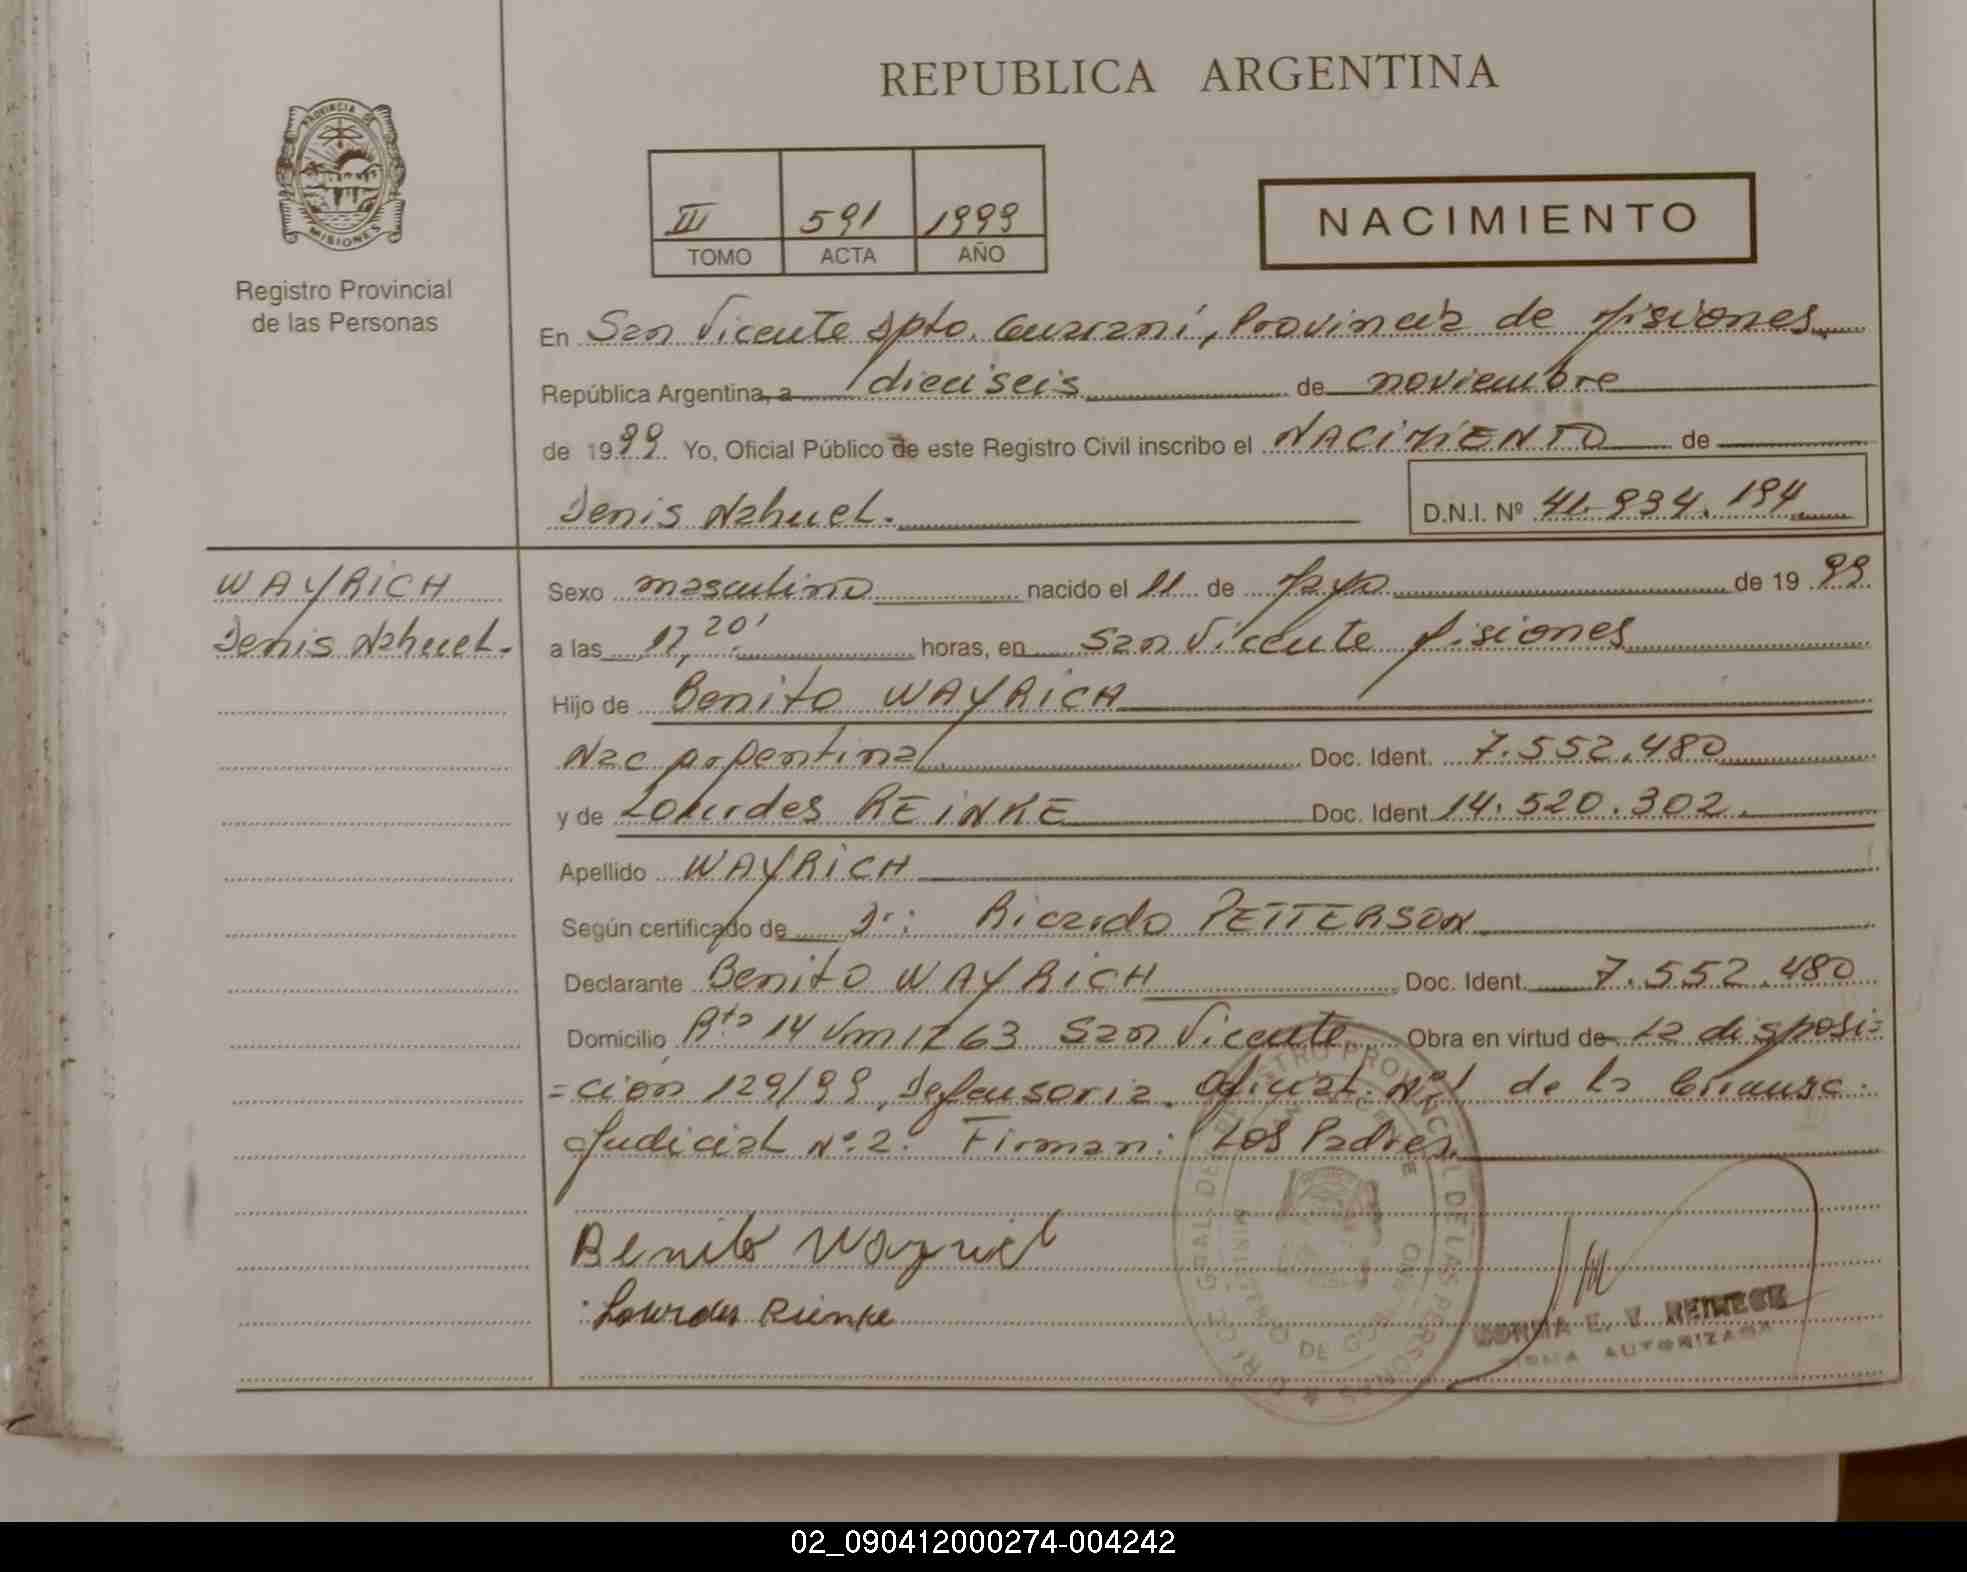 REPUBLICA ARGENTINA
PROVINCIA DE MISIONES
Registro Provincial
de las Personas
III 591 1999
TOMO ACTA AÑO
NACIMIENTO
En San Vicente Dpto. Guarani, Provincia de Misiones
República Argentina, a dieciseis de noviembre
de 1999 Yo, Oficial Público de este Registro Civil inscribo el NACIMIENTO de
Denis Nahuel.
D.N.I. Nº 41.934.194
WAYRICH
Denis Nahuel.
Sexo masculino nacido el 11 de Mayo de 1999
a las 17,20' horas, en San Vicente Misiones
Hijo de Benito WAYRICH
Nac argentina Doc. Ident. 7.552.480
y de Lourdes REINKE Doc. Ident. 14.520.302.
Apellido WAYRICH
Según certificado de Dr: Ricardo PETTERSON
Declarante Benito WAYRICH Doc. Ident. 7.552.480
Domicilio Rta 14 San Vicente Obra en virtud de la disposi=
=cion 129/99, Defensoria Oficial Nº1 de la
Judicial Nº2. Firman: Los Padres.
Benito Wayrich
Lourdes Reinke
E. V. REINECK
AUTORIZADA
02_090412000274-004242